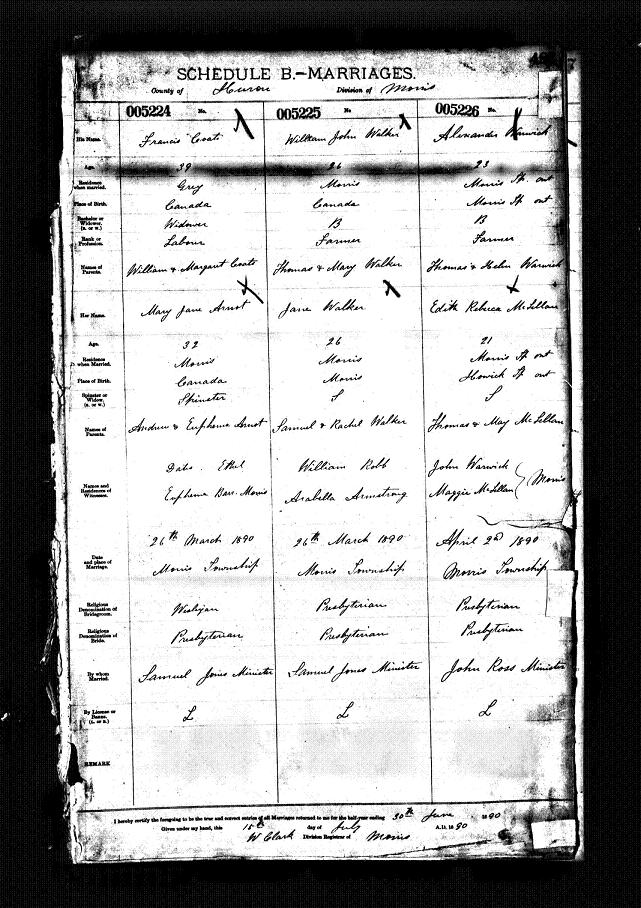 SCHEDULE B.—MARRIAGES.
County of Huron Division of Morris
005224 No. 005225 No 005226 No.
His Name. Francis Coats William John Walker Alexander Warwick
Age. 39 26 23
Residence when married. Grey Morris Morris Tp. ont
Place of Birth. Canada Canada Morris Tp ont
Bachelor or Widower. (B. or W.) Widower B B
Rank or Profession. Labour Farmer Farmer
Names of Parents. William & Margaret Coats Thomas & Mary Walker Thomas & Helen Warwick
Her Name. Mary Jane Arnot Jane Walker Edith Rebecca McLellan
Age. 32 26 21
Residence when Married. Morris Morris Morris Tp ont
Place of Birth. Canada Morris Howick Tp ont
Spinster or Widow. (S. or W.) Spinster S S
Names of Parents. Andrew & Eupheme Arnot Samuel & Rachel Walker Thomas & May McLellan
Names and Residences of Witnesses. Ethel William Robb John Warwick
Eupheme Barr. Morris Arabella Armstrong Maggie McLellan } Morris
Date and place of Marriage. 26th March 1890 26th March 1890 April 2nd 1890
Morris Township Morris Township Morris Township
Religious Denomination of Bridegroom. Wesleyan Presbyterian Presbyterian
Religious Denomination of Bride. Presbyterian Presbyterian Presbyterian
By whom Married. Samuel Jones Minister Samuel Jones Minister John Ross Minister
By License or Banns. (L. or B.) L L L
REMARK
I hereby certify the foregoing to be the true and correct entries of all Marriages returned to me for the half-year ending 30th June 1890
Given under my hand, this 15th day of July A.D. 1890
W Clark Division Registrar of Morris